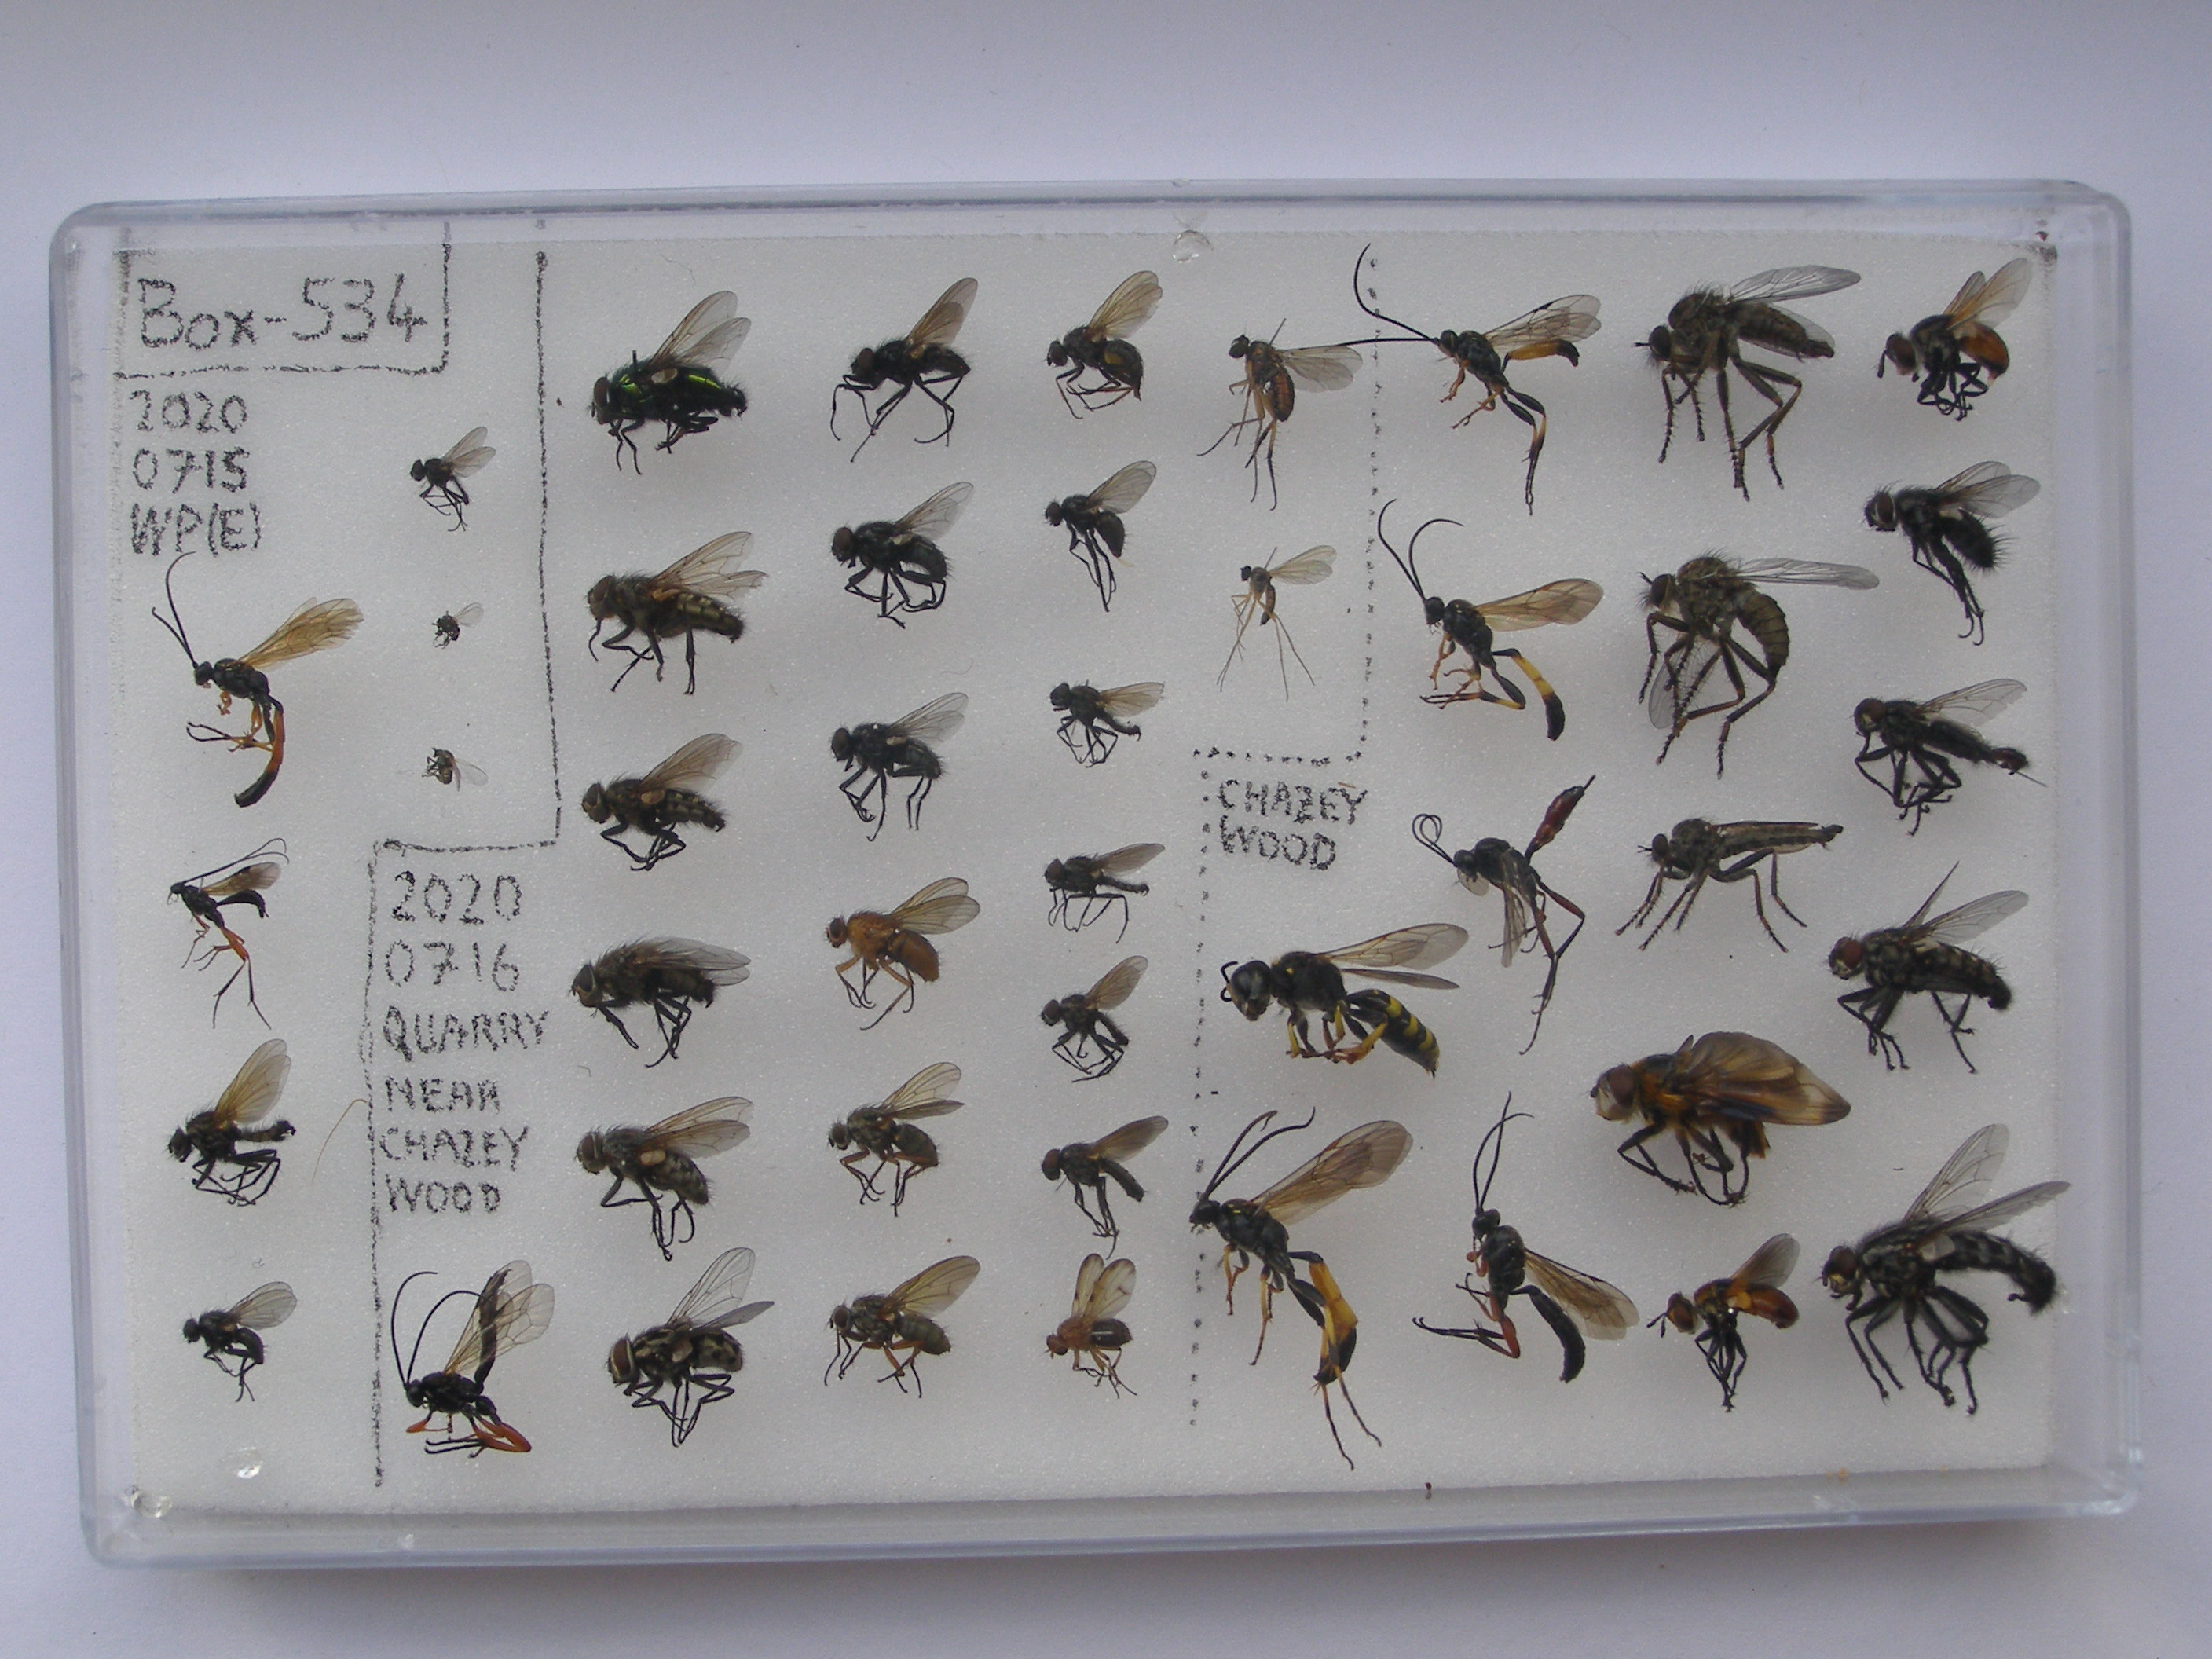 Box-534
2020
0715
WP(E)
2020
0716
QUARRY
NEAR
CHAZEY
WOOD
CHAZEY
WOOD